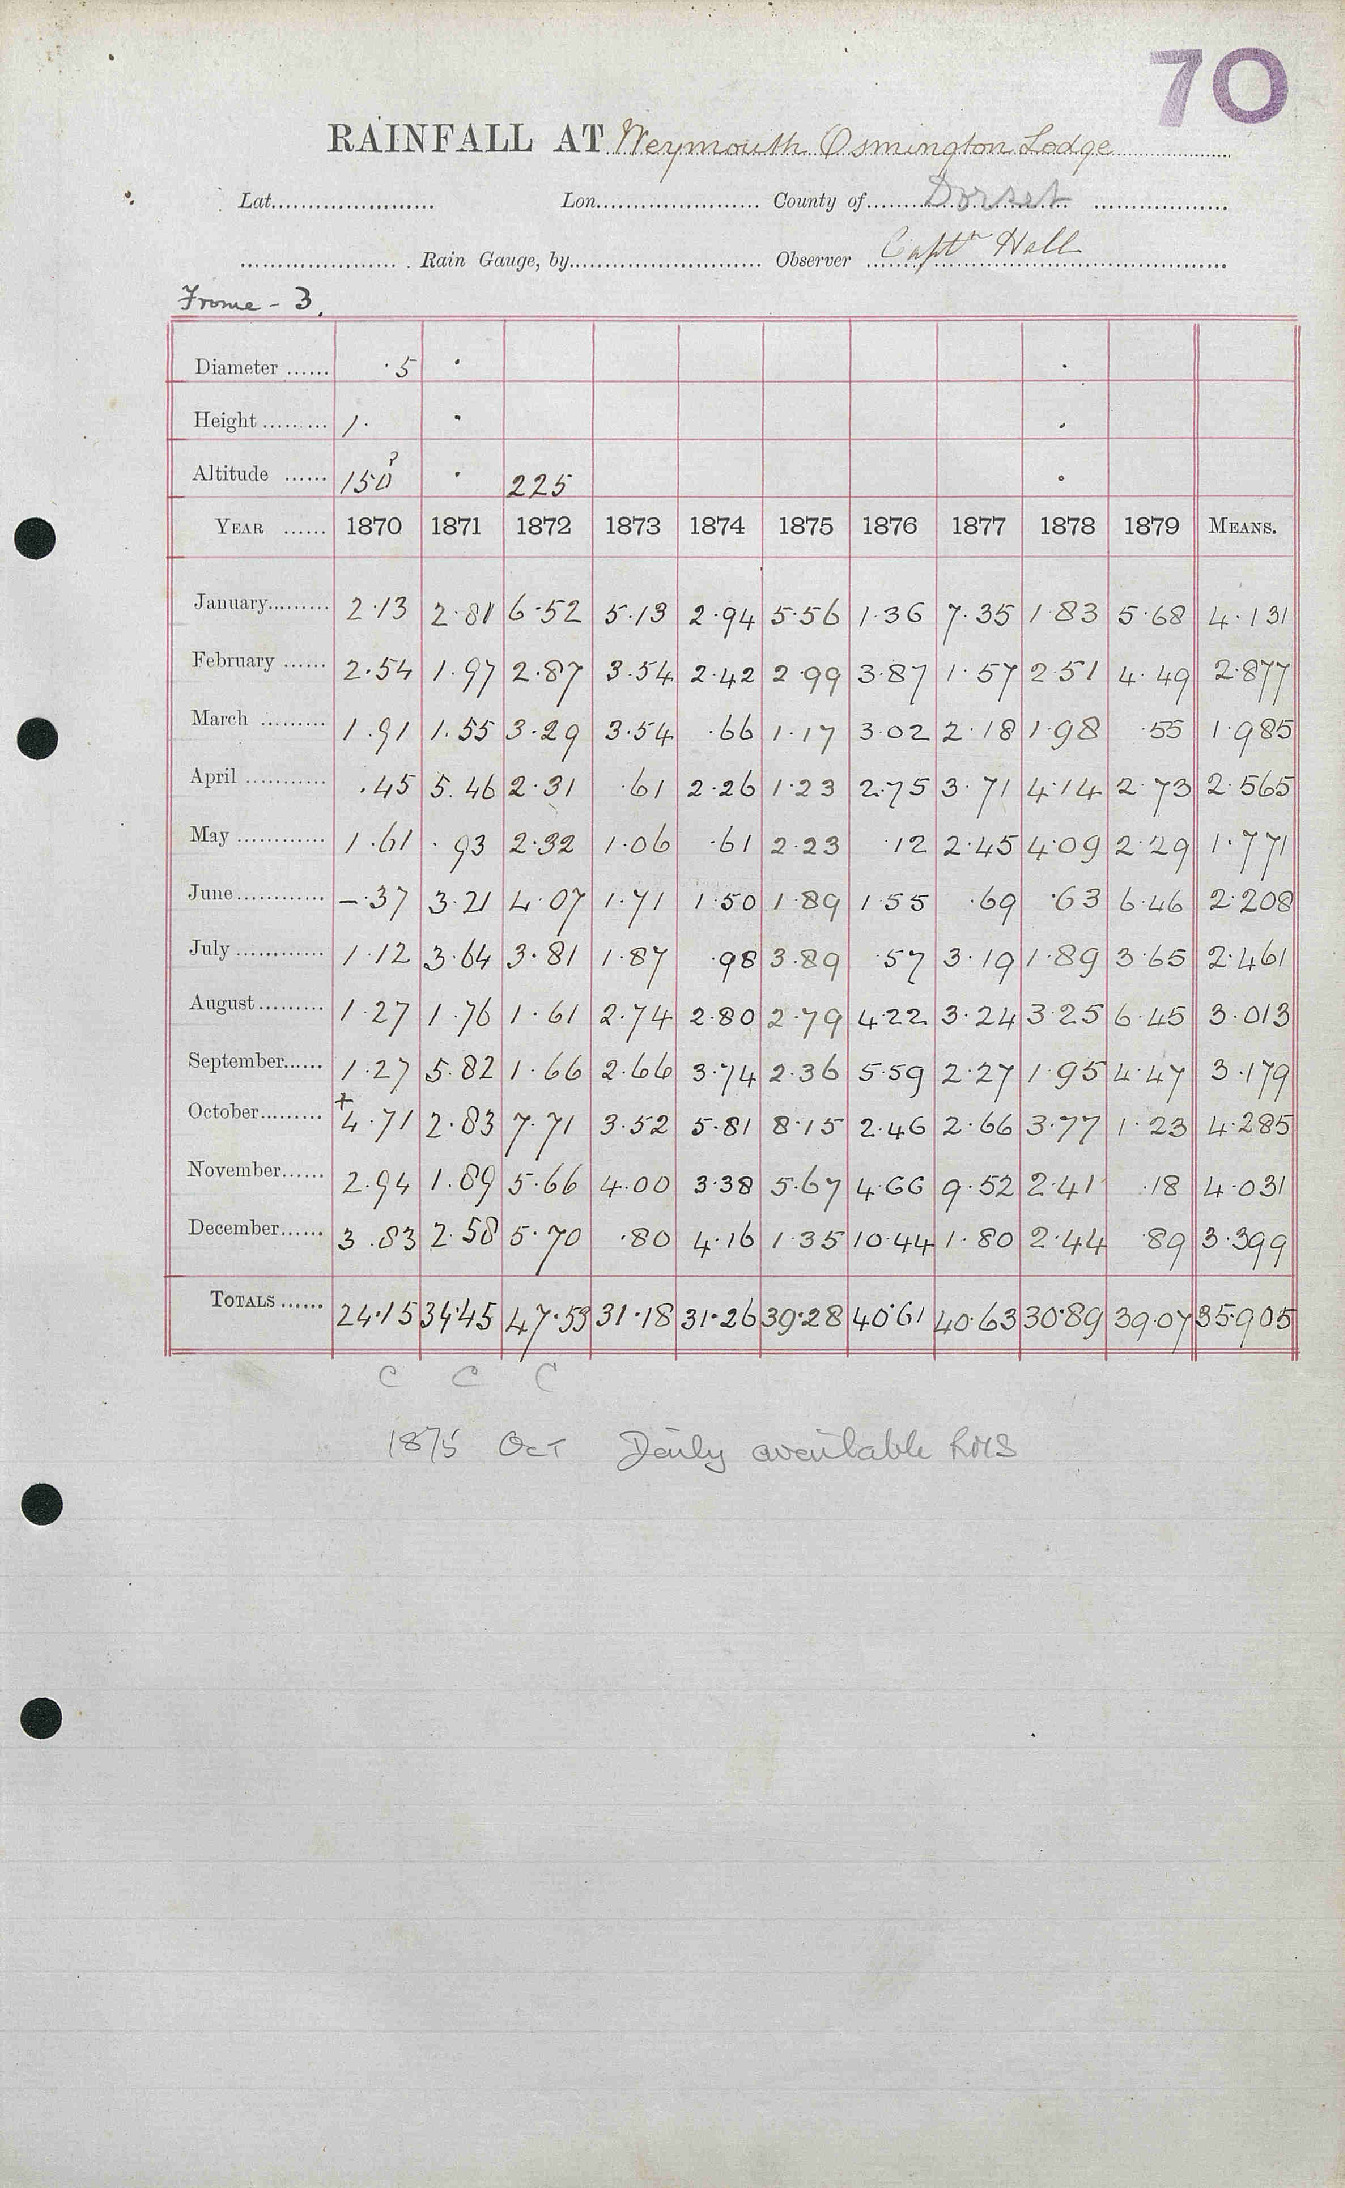 70
RAINFALL AT Weymouth Osmington Lodge
Lat. Lon. County of Dorset
Rain Gauge, by Observer Captn Hall
Frome - 3.
Diameter ...... ·5 ·  ·
Height ......... 1· ·  ·
Altitude ...... 150? · 225 ·
YEAR ...... 1870 1871 1872 1873 1874 1875 1876 1877 1878 1879 MEANS.
January......... 2·13 2·81 6·52 5·13 2·94 5·56 1·36 7·35 1·83 5·68 4·131
February ...... 2·54 1·97 2·87 3·54 2·42 2·99 3·87 1·57 2·51 4·49 2·877
March ......... 1·91 1·55 3·29 3·54 ·66 1·17 3·02 2·18 1·98 ·55 1·985
April ........... ·45 5·46 2·31 ·61 2·26 1·23 2·75 3·71 4·14 2·73 2·565
May ............ 1·61 ·93 2·32 1·06 ·61 2·23 ·12 2·45 4·09 2·29 1·771
June............ –·37 3·21 4·07 1·71 1·50 1·89 1·55 ·69 ·63 6·46 2·208
July ............ 1·12 3·64 3·81 1·87 ·98 3·89 ·57 3·19 1·89 3·65 2·461
August......... 1·27 1·76 1·61 2·74 2·80 2·79 4·22 3·24 3·25 6·45 3·013
September...... 1·27 5·82 1·66 2·66 3·74 2·36 5·59 2·27 1·95 4·47 3·179
October......... +4·71 2·83 7·71 3·52 5·81 8·15 2·46 2·66 3·77 1·23 4·285
November...... 2·94 1·89 5·66 4·00 3·38 5·67 4·66 9·52 2·41 ·18 4·031
December...... 3·83 2·58 5·70 ·80 4·16 1·35 10·44 1·80 2·44 ·89 3·399
TOTALS ...... 24·15 34·45 47·53 31·18 31·26 39·28 40·61 40·63 30·89 39·07 35·905
C C C
1875 Oct Daily available